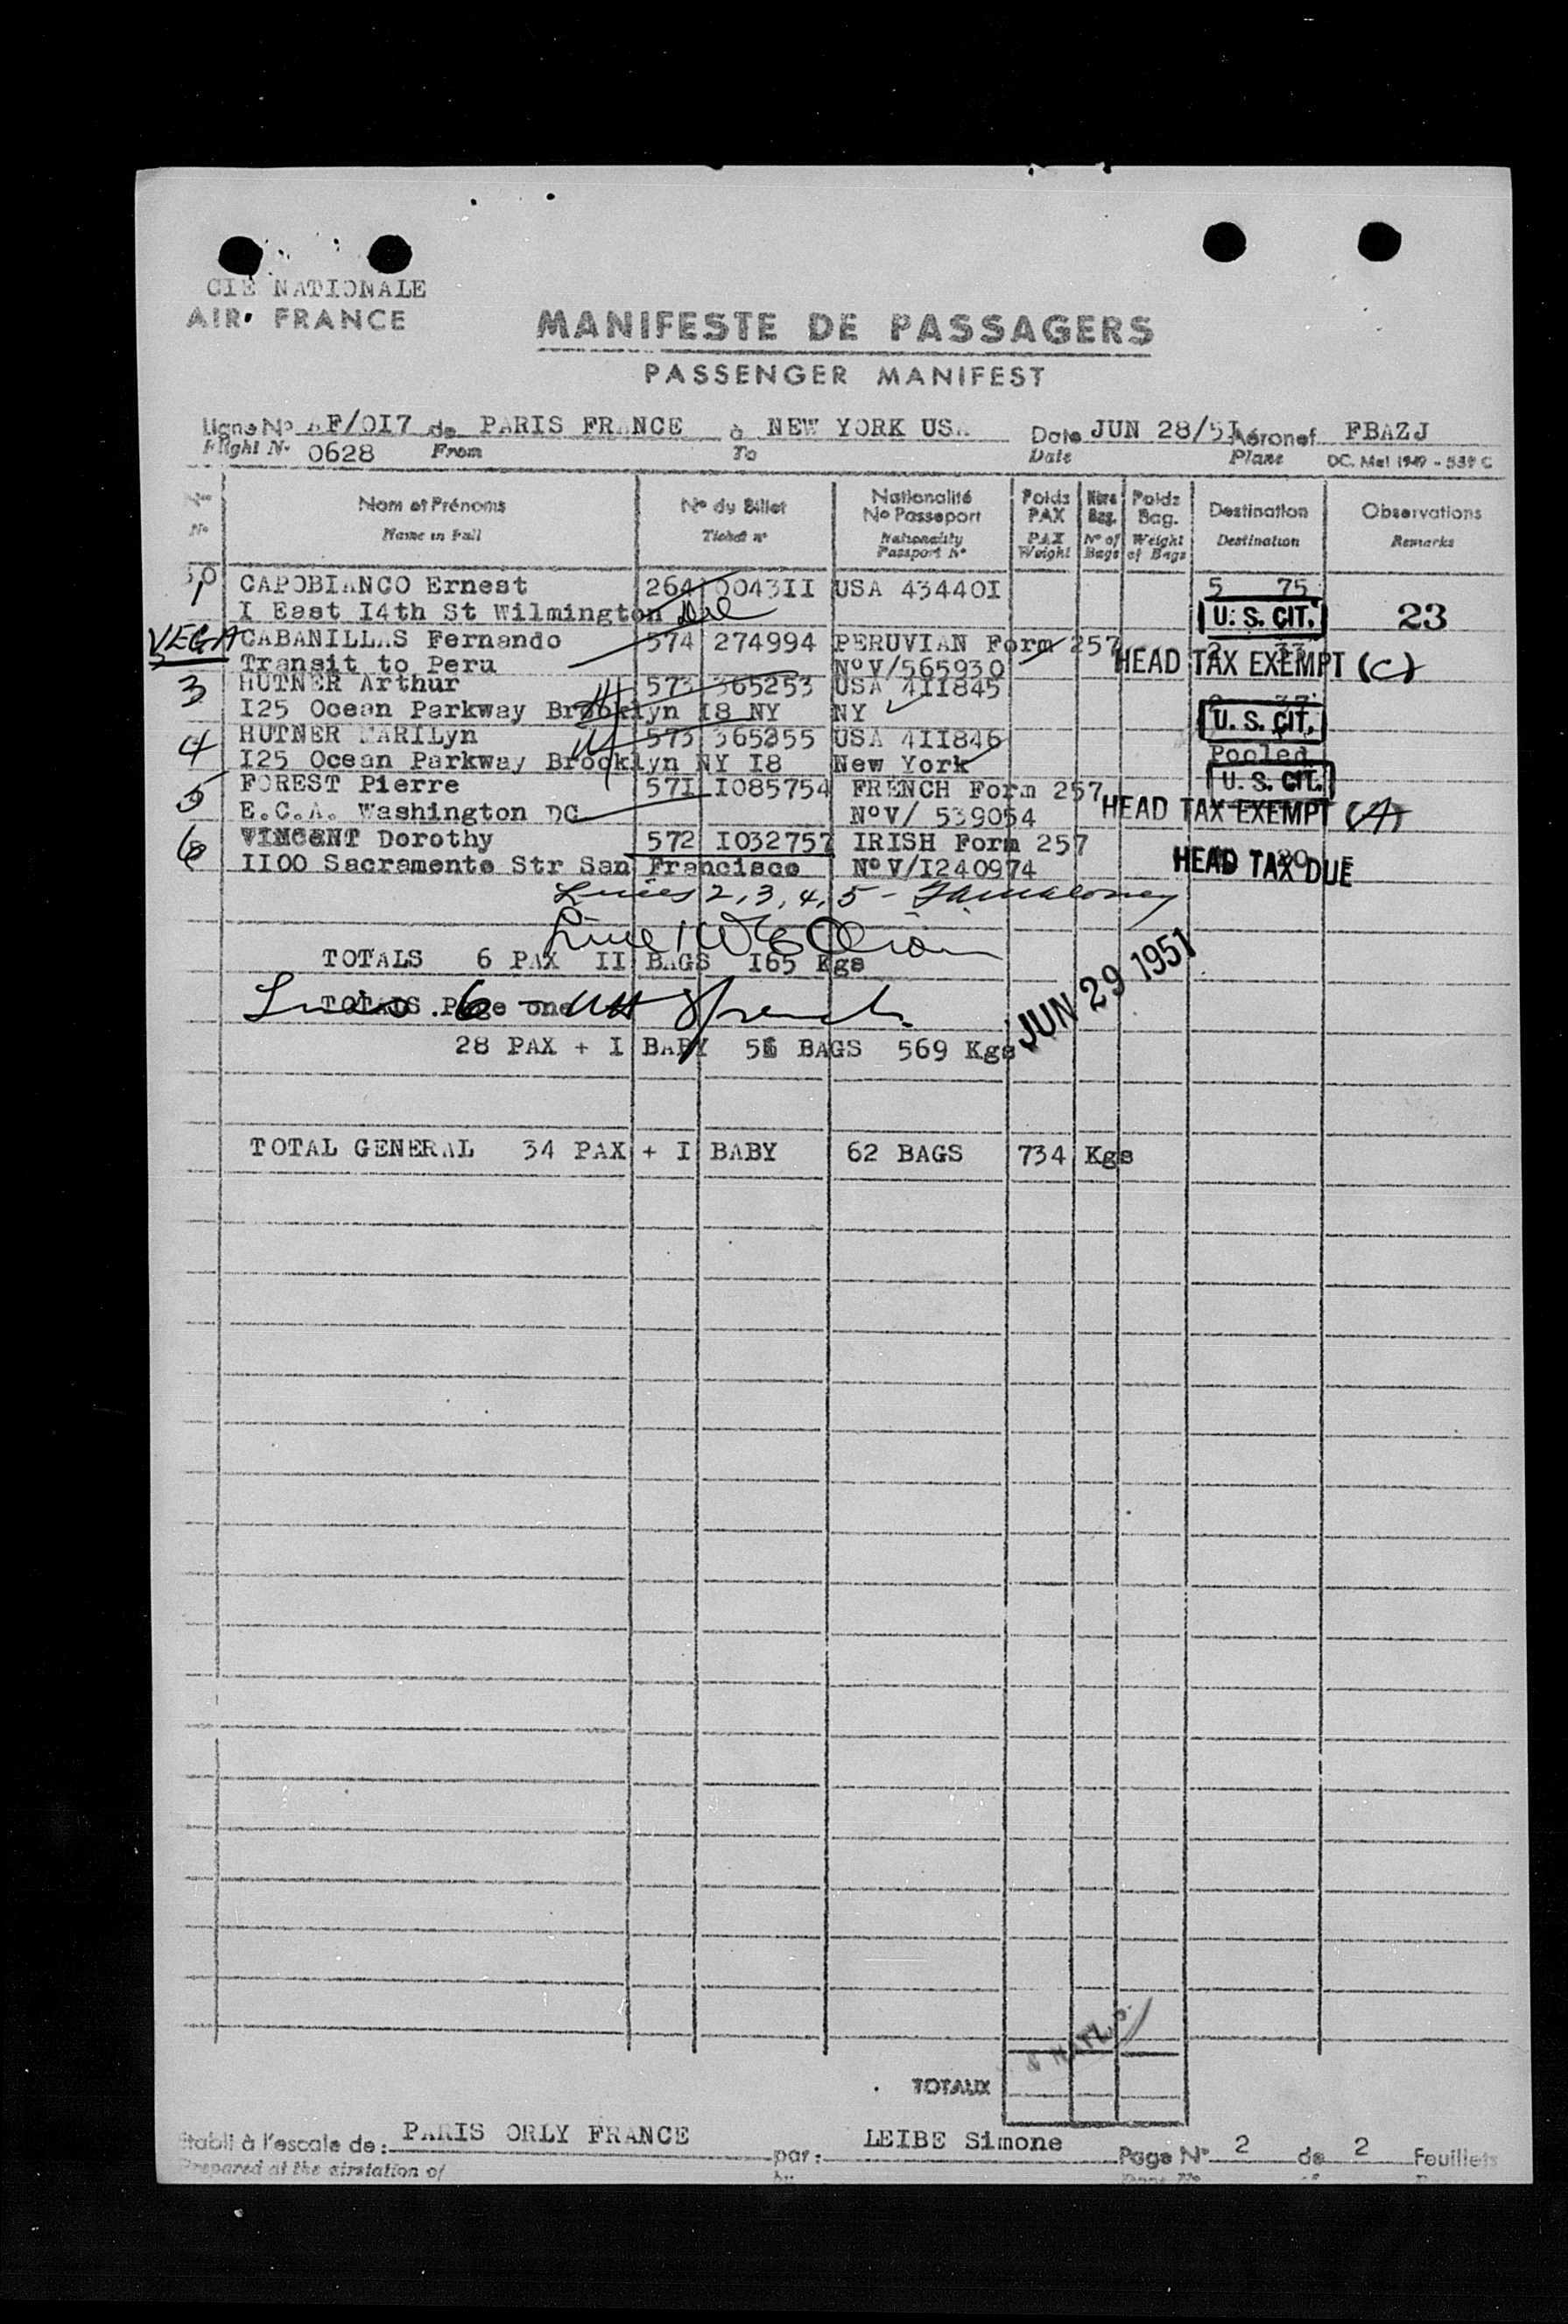 CIE NATIONALE
AIR FRANCE
MANIFESTE DE PASSAGERS
PASSENGER MANIFEST
Ligne No AF/OI7 de PARIS FRANCE à NEW YORK USA Date JUN 28/5I Aéronef FBAZJ
Flight No 0628 From To Date Plane
Nom et Prénoms No du Billet Nationalité No Passeport Poids PAX Nbre Bag. Poids Bag. Destination Observations
No Name in Full Ticket no Nationality Passport No PAX Weight No of Bags Weight of Bags Destination Remarks
1 CAPOBIANCO Ernest 264 0043II USA 43440I 5 75
I East I4th St Wilmington Del U. S. CIT. 23
VEGA CABANILLAS Fernando 574 274994 PERUVIAN Form 257
Transit to Peru No V/565930 HEAD TAX EXEMPT (C)
3 HUTNER Arthur 573 365253 USA 4II845
I25 Ocean Parkway Brooklyn I8 NY NY U. S. CIT.
4 HUTNER MARILyn 573 365255 USA 4II846 Pooled
I25 Ocean Parkway Brooklyn NY I8 New York U. S. CIT.
5 FOREST Pierre 57I I085754 FRENCH Form 257
E.C.A. Washington DC No V/ 539054 HEAD TAX EXEMPT (A)
6 VINCENT Dorothy 572 I032757 IRISH Form 257
II00 Sacramento Str San Francisco No V/I240974 HEAD TAX DUE
Lines 2, 3, 4, 5 -
Line 1
TOTALS 6 PAX II BAGS I65 Kgs
JUN 29 1951
TOTALS Page one
Line 6
28 PAX + I BABY 5I BAGS 569 Kgs
TOTAL GENERAL 34 PAX + I BABY 62 BAGS 734 Kgs
TOTAUX
Etabli à l'escale de: PARIS ORLY FRANCE par: LEIBE Simone Page No 2 de 2 Feuillets
Prepared at the airstation of by